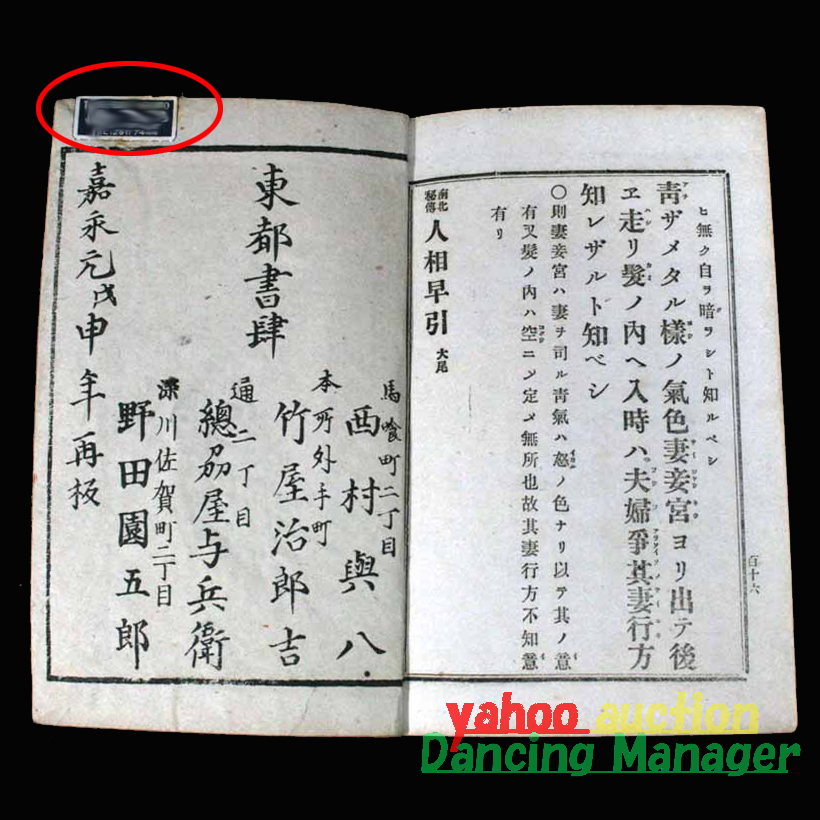 ヒ無ク自ヲ暗ヲシト知ルベシ
青ザメタル樣ノ氣色妻妾宮ヨリ出テ後
ヱ走リ髮ノ內ヘ入時ハ夫婦爭其妻行方
知レザルト知ベシ
〇則妻妾宮ハ妻ヲ司ル靑氣ハ怒ノ色ナリ以テ其ノ意
有又髮ノ內ハ空ニソ定メ無所也故其妻行方不知意
有リ
南北秘傳 人相早引 大尾
百十六
馬喰町二丁目
西村與八
本所外手町
竹屋治郎吉
東都書肆
通二丁目
總刕屋与兵衛
深川佐賀町二丁目
野田園五郎
嘉永元戊申年再板
yahoo auction
Dancing Manager